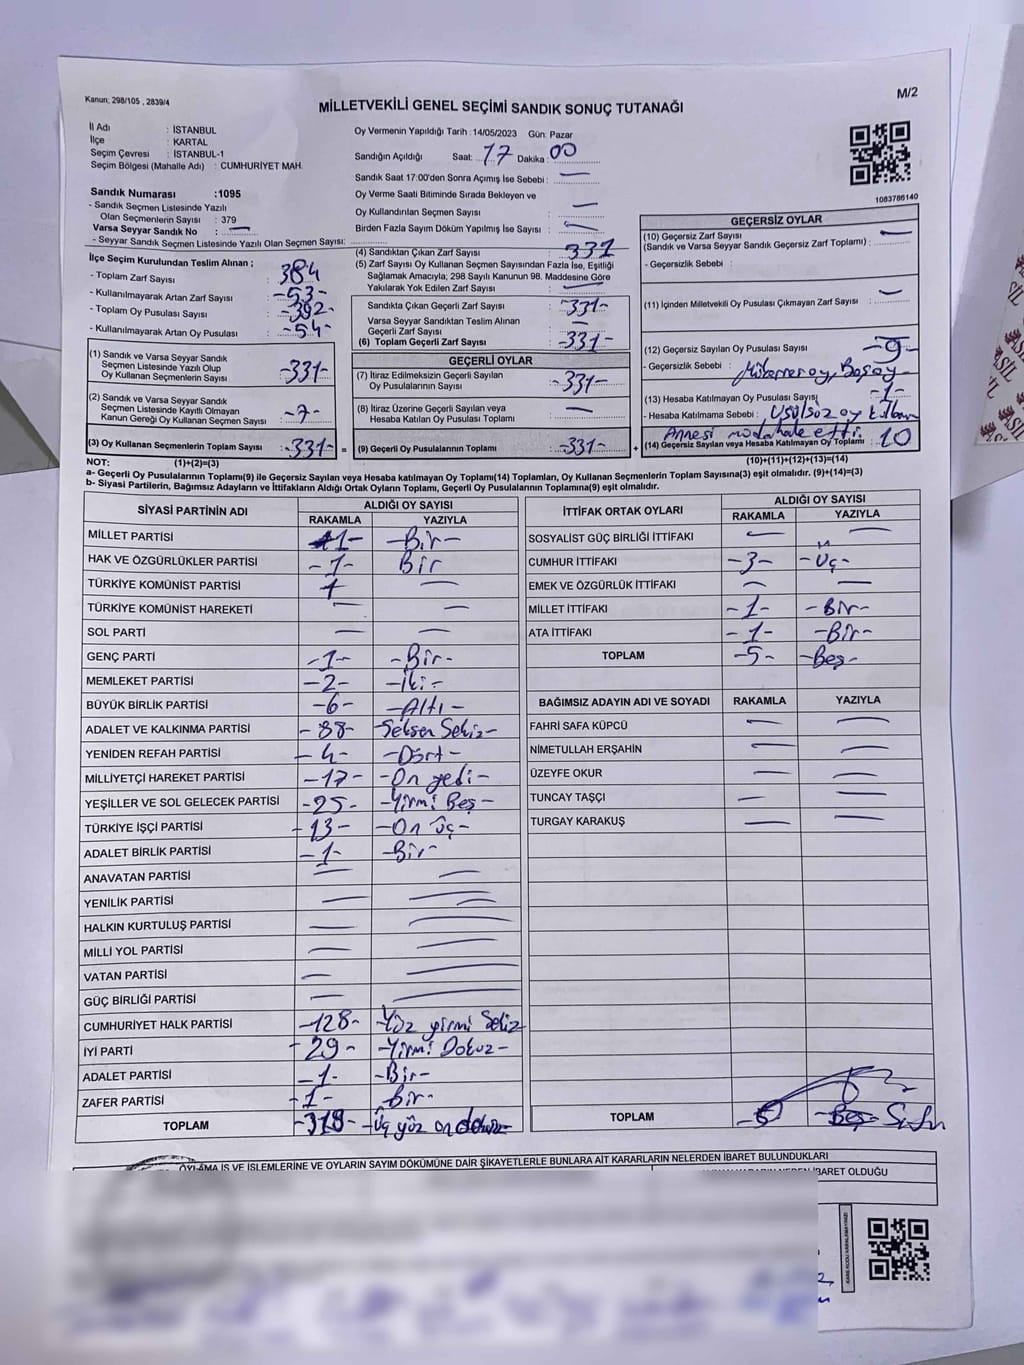 Kanun; 298/105 , 2839/4
M/2
MİLLETVEKİLİ GENEL SEÇİMİ SANDIK SONUÇ TUTANAĞI
İl Adı : İSTANBUL
İlçe : KARTAL
Seçim Çevresi : İSTANBUL-1
Seçim Bölgesi (Mahalle Adı) : CUMHURİYET MAH.
Sandık Numarası :1095
- Sandık Seçmen Listesinde Yazılı
Olan Seçmenlerin Sayısı : 379
Varsa Seyyar Sandık No : —
- Seyyar Sandık Seçmen Listesinde Yazılı Olan Seçmen Sayısı:
İlçe Seçim Kurulundan Teslim Alınan ;
- Toplam Zarf Sayısı : 384
- Kullanılmayarak Artan Zarf Sayısı : -53-
- Toplam Oy Pusulası Sayısı : -392-
- Kullanılmayarak Artan Oy Pusulası : -54-
(1) Sandık ve Varsa Seyyar Sandık
Seçmen Listesinde Yazılı Olup
Oy Kullanan Seçmenlerin Sayısı : -331-
(2) Sandık ve Varsa Seyyar Sandık
Seçmen Listesinde Kayıtlı Olmayan
Kanun Gereği Oy Kullanan Seçmen Sayısı : -7-
(3) Oy Kullanan Seçmenlerin Toplam Sayısı : -331- =
Oy Vermenin Yapıldığı Tarih : 14/05/2023 Gün: Pazar
Sandığın Açıldığı Saat: 17 Dakika : 00
Sandık Saat 17:00'den Sonra Açımış İse Sebebi : —
Oy Verme Saati Bitiminde Sırada Bekleyen ve
Oy Kullandırılan Seçmen Sayısı : —
Birden Fazla Sayım Döküm Yapılmış İse Sayısı : —
(4) Sandıktan Çıkan Zarf Sayısı : 331
(5) Zarf Sayısı Oy Kullanan Seçmen Sayısından Fazla İse, Eşitliği
Sağlamak Amacıyla; 298 Sayılı Kanunun 98. Maddesine Göre
Yakılarak Yok Edilen Zarf Sayısı : —
Sandıkta Çıkan Geçerli Zarf Sayısı : -331-
Varsa Seyyar Sandıktan Teslim Alınan
Geçerli Zarf Sayısı : —
(6) Toplam Geçerli Zarf Sayısı : -331-
GEÇERLİ OYLAR
(7) İtiraz Edilmeksizin Geçerli Sayılan
Oy Pusulalarının Sayısı : -331-
(8) İtiraz Üzerine Geçerli Sayılan veya
Hesaba Katılan Oy Pusulaları Toplamı : —
(9) Geçerli Oy Pusulalarının Toplamı : -331- +
1083786140
GEÇERSİZ OYLAR
(10) Geçersiz Zarf Sayısı : —
(Sandık ve Varsa Seyyar Sandık Geçersiz Zarf Toplamı) :
- Geçersizlik Sebebi :
(11) İçinden Milletvekili Oy Pusulası Çıkmayan Zarf Sayısı : —
(12) Geçersiz Sayılan Oy Pusulası Sayısı : -9-
- Geçersizlik Sebebi : Mükerrer oy, Boş oy
(13) Hesaba Katılmayan Oy Pusulası Sayısı : -1-
- Hesaba Katılmama Sebebi : Usülsüz oy
Annesi müdahale etti.
(14) Geçersiz Sayılan veya Hesaba Katılmayan Oy Toplamı : 10
NOT: (1)+(2)=(3)
(10)+(11)+(12)+(13)=(14)
a- Geçerli Oy Pusulalarının Toplamı(9) ile Geçersiz Sayılan veya Hesaba katılmayan Oy Toplamı(14) Toplamları, Oy Kullanan Seçmenlerin Toplam Sayısına(3) eşit olmalıdır. (9)+(14)=(3)
b- Siyasi Partilerin, Bağımsız Adayların ve İttifakların Aldığı Oy Sayısı Toplamı, Geçerli Oy Pusulalarının Toplamına(9) eşit olmalıdır.
SİYASİ PARTİNİN ADI ALDIĞI OY SAYISI
RAKAMLA YAZIYLA
MİLLET PARTİSİ 1- -Bir-
HAK VE ÖZGÜRLÜKLER PARTİSİ -1- Bir
TÜRKİYE KOMÜNİST PARTİSİ —
TÜRKİYE KOMÜNİST HAREKETİ — —
SOL PARTİ — —
GENÇ PARTİ -1- -Bir-
MEMLEKET PARTİSİ -2- -İki-
BÜYÜK BİRLİK PARTİSİ -6- -Altı-
ADALET VE KALKINMA PARTİSİ -88- -Seksen Sekiz-
YENİDEN REFAH PARTİSİ -4- -Dört-
MİLLİYETÇİ HAREKET PARTİSİ -17- -On yedi-
YEŞİLLER VE SOL GELECEK PARTİSİ -25- -Yirmi Beş-
TÜRKİYE İŞÇİ PARTİSİ -13- -On üç-
ADALET BİRLİK PARTİSİ -1- -Bir-
ANAVATAN PARTİSİ — —
YENİLİK PARTİSİ — —
HALKIN KURTULUŞ PARTİSİ — —
MİLLİ YOL PARTİSİ — —
VATAN PARTİSİ — —
GÜÇ BİRLİĞİ PARTİSİ — —
CUMHURİYET HALK PARTİSİ -128- -Yüz yirmi Sekiz
İYİ PARTİ -29- -Yirmi Dokuz-
ADALET PARTİSİ -1- -Bir-
ZAFER PARTİSİ -1- Bir-
TOPLAM -Üç yüz on
İTTİFAK ORTAK OYLARI ALDIĞI OY SAYISI
RAKAMLA YAZIYLA
SOSYALİST GÜÇ BİRLİĞİ İTTİFAKI — —
CUMHUR İTTİFAKI -3- -Üç-
EMEK VE ÖZGÜRLÜK İTTİFAKI — —
MİLLET İTTİFAKI -1- -Bir-
ATA İTTİFAKI -1- -Bir-
TOPLAM -5- -Beş-
BAĞIMSIZ ADAYIN ADI VE SOYADI RAKAMLA YAZIYLA
FAHRİ SAFA KÜPCÜ — —
NİMETULLAH ERŞAHİN — —
ÜZEYFE OKUR — —
TUNCAY TAŞÇI — —
TURGAY KARAKUŞ — —
TOPLAM
OYLAMA İŞ VE İŞLEMLERİNE VE OYLARIN SAYIM DÖKÜMÜNE DAİR ŞİKAYETLERLE BUNLARA AİT KARARLARIN NELERDEN İBARET BULUNDUKLARI
İBARET OLDUĞU